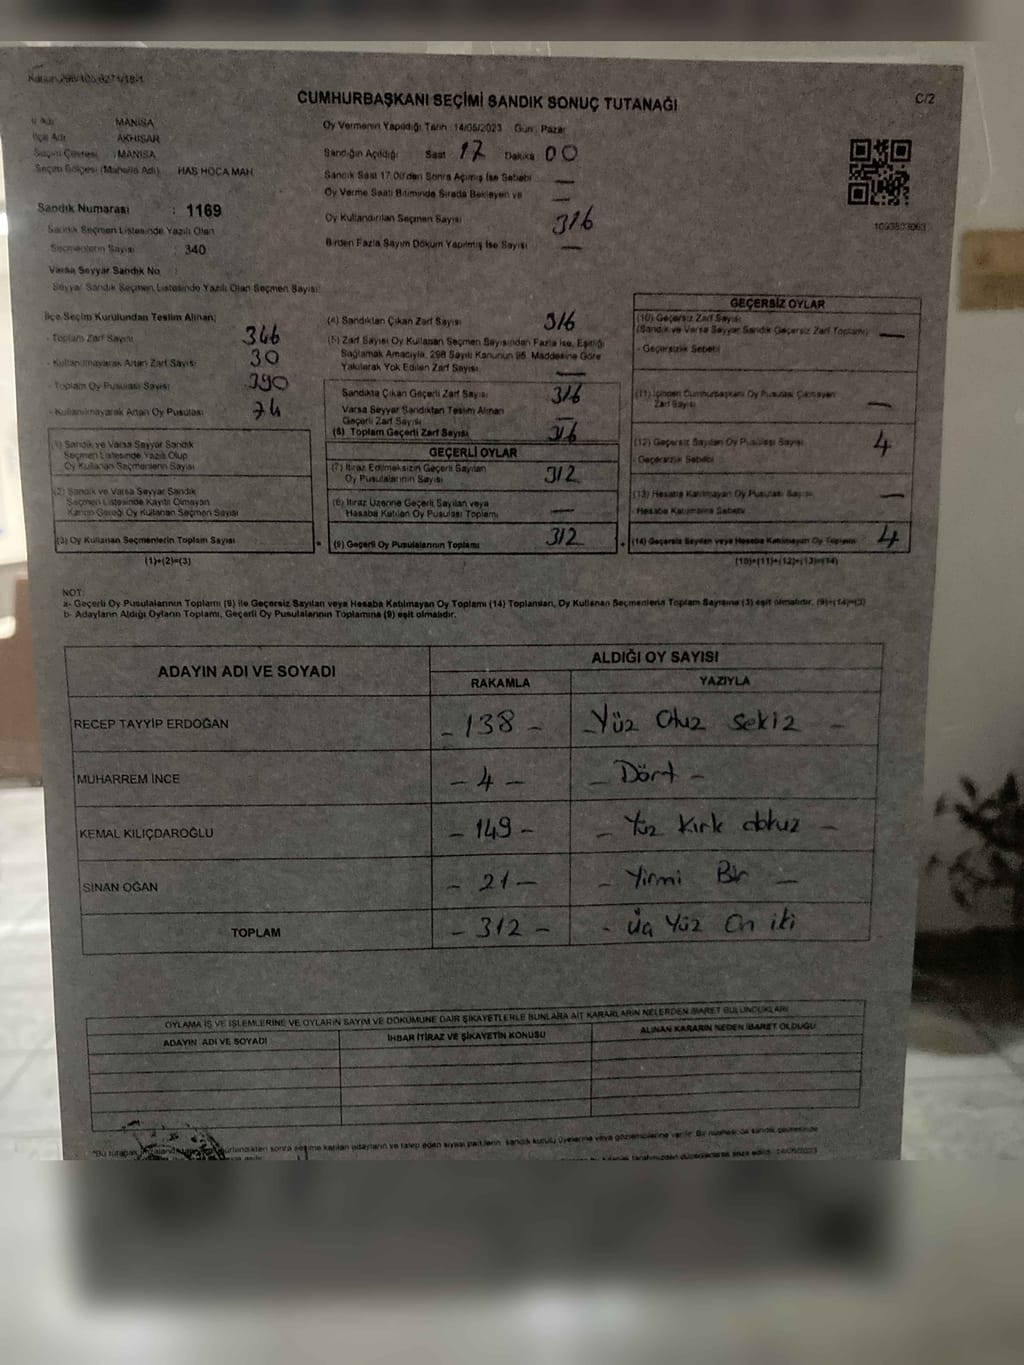 CUMHURBAŞKANI SEÇİMİ SANDIK SONUÇ TUTANAĞI
C/2
İl Adı MANİSA
İlçe Adı AKHİSAR
Seçim Çevresi : MANİSA
Seçim Bölgesi (Mahalle Adı) HAS HOCA MAH
Sandık Numarası : 1169
Sandık Seçmen Listesinde Yazılı Olan
Seçmenlerin Sayısı : 340
Varsa Seyyar Sandık No :
Seyyar Sandık Seçmen Listesinde Yazılı Olan Seçmen Sayısı:
Oy Vermenin Yapıldığı Tarih : 14/05/2023 Gün : Pazar
Sandığın Açıldığı Saat 17 Dakika 00
Sandık Saat 17.00'den Sonra Açılmış İse Sebebi —
Oy Verme Saati Bitiminde Sırada Bekleyen ve —
Oy Kullandırılan Seçmen Sayısı 316
Birden Fazla Sayım Döküm Yapılmış İse Sayısı —
İlçe Seçim Kurulundan Teslim Alınan;
- Toplam Zarf Sayısı 346
- Kullanılmayarak Artan Zarf Sayısı 30
- Toplam Oy Pusulası Sayısı 390
- Kullanılmayarak Artan Oy Pusulası 74
(1) Sandık ve Varsa Seyyar Sandık
Seçmen Listesinde Yazılı Olup
Oy Kullanan Seçmenlerin Sayısı
(2) Sandık ve Varsa Seyyar Sandık
Seçmen Listesinde Kayıtlı Olmayan
Kanun Gereği Oy Kullanan Seçmen Sayısı
(3) Oy Kullanan Seçmenlerin Toplam Sayısı
(1)+(2)=(3)
(4) Sandıktan Çıkan Zarf Sayısı 316
(5) Zarf Sayısı Oy Kullanan Seçmen Sayısından Fazla İse, Eşitliği
Sağlamak Amacıyla, 298 Sayılı Kanunun 98. Maddesine Göre
Yakılarak Yok Edilen Zarf Sayısı —
Sandıkta Çıkan Geçerli Zarf Sayısı 316
Varsa Seyyar Sandıktan Teslim Alınan
Geçerli Zarf Sayısı —
(6) Toplam Geçerli Zarf Sayısı 316
GEÇERLİ OYLAR
(7) İtiraz Edilmeksizin Geçerli Sayılan
Oy Pusulalarının Sayısı 312
(8) İtiraz Üzerine Geçerli Sayılan veya
Hesaba Katılan Oy Pusulası Toplamı —
(9) Geçerli Oy Pusulalarının Toplamı 312
GEÇERSİZ OYLAR
(10) Geçersiz Zarf Sayısı
(Sandık ve Varsa Seyyar Sandık Geçersiz Zarf Toplamı) —
- Geçersizlik Sebebi
(11) İçinden Cumhurbaşkanı Oy Pusulası Çıkmayan
Zarf Sayısı —
(12) Geçersiz Sayılan Oy Pusulası Sayısı 4
- Geçersizlik Sebebi
(13) Hesaba Katılmayan Oy Pusula Sayısı —
Hesaba Katılmama Sebebi
(14) Geçersiz Sayılan veya Hesaba Katılmayan Oy Toplamı 4
(10)+(11)+(12)+(13)=(14)
NOT:
a- Geçerli Oy Pusulalarının Toplamı (9) ile Geçersiz Sayılan veya Hesaba Katılmayan Oy Toplamı (14) Toplamları, Oy Kullanan Seçmenlerin Toplam Sayısına (3) eşit olmalıdır. (9)+(14)=(3)
b- Adayların Aldığı Oyların Toplamı, Geçerli Oy Pusulalarının Toplamına (9) eşit olmalıdır.
ADAYIN ADI VE SOYADI ALDIĞI OY SAYISI
RAKAMLA YAZIYLA
RECEP TAYYİP ERDOĞAN - 138 - - Yüz Otuz Sekiz -
MUHARREM İNCE - 4 - - Dört -
KEMAL KILIÇDAROĞLU - 149 - - Yüz Kırk dokuz -
SİNAN OĞAN - 21 - - Yirmi Bir -
TOPLAM - 312 - - Üç Yüz On iki
OYLAMA İŞ VE İŞLEMLERİNE VE OYLARIN SAYIM VE DÖKÜMÜNE DAİR ŞİKAYETLERLE BUNLARA AİT KARARLARIN NELERDEN İBARET BULUNDUKLARI
ADAYIN ADI VE SOYADI İHBAR İTİRAZ VE ŞİKAYETİN KONUSU ALINAN KARARIN NEDEN İBARET OLDUĞU